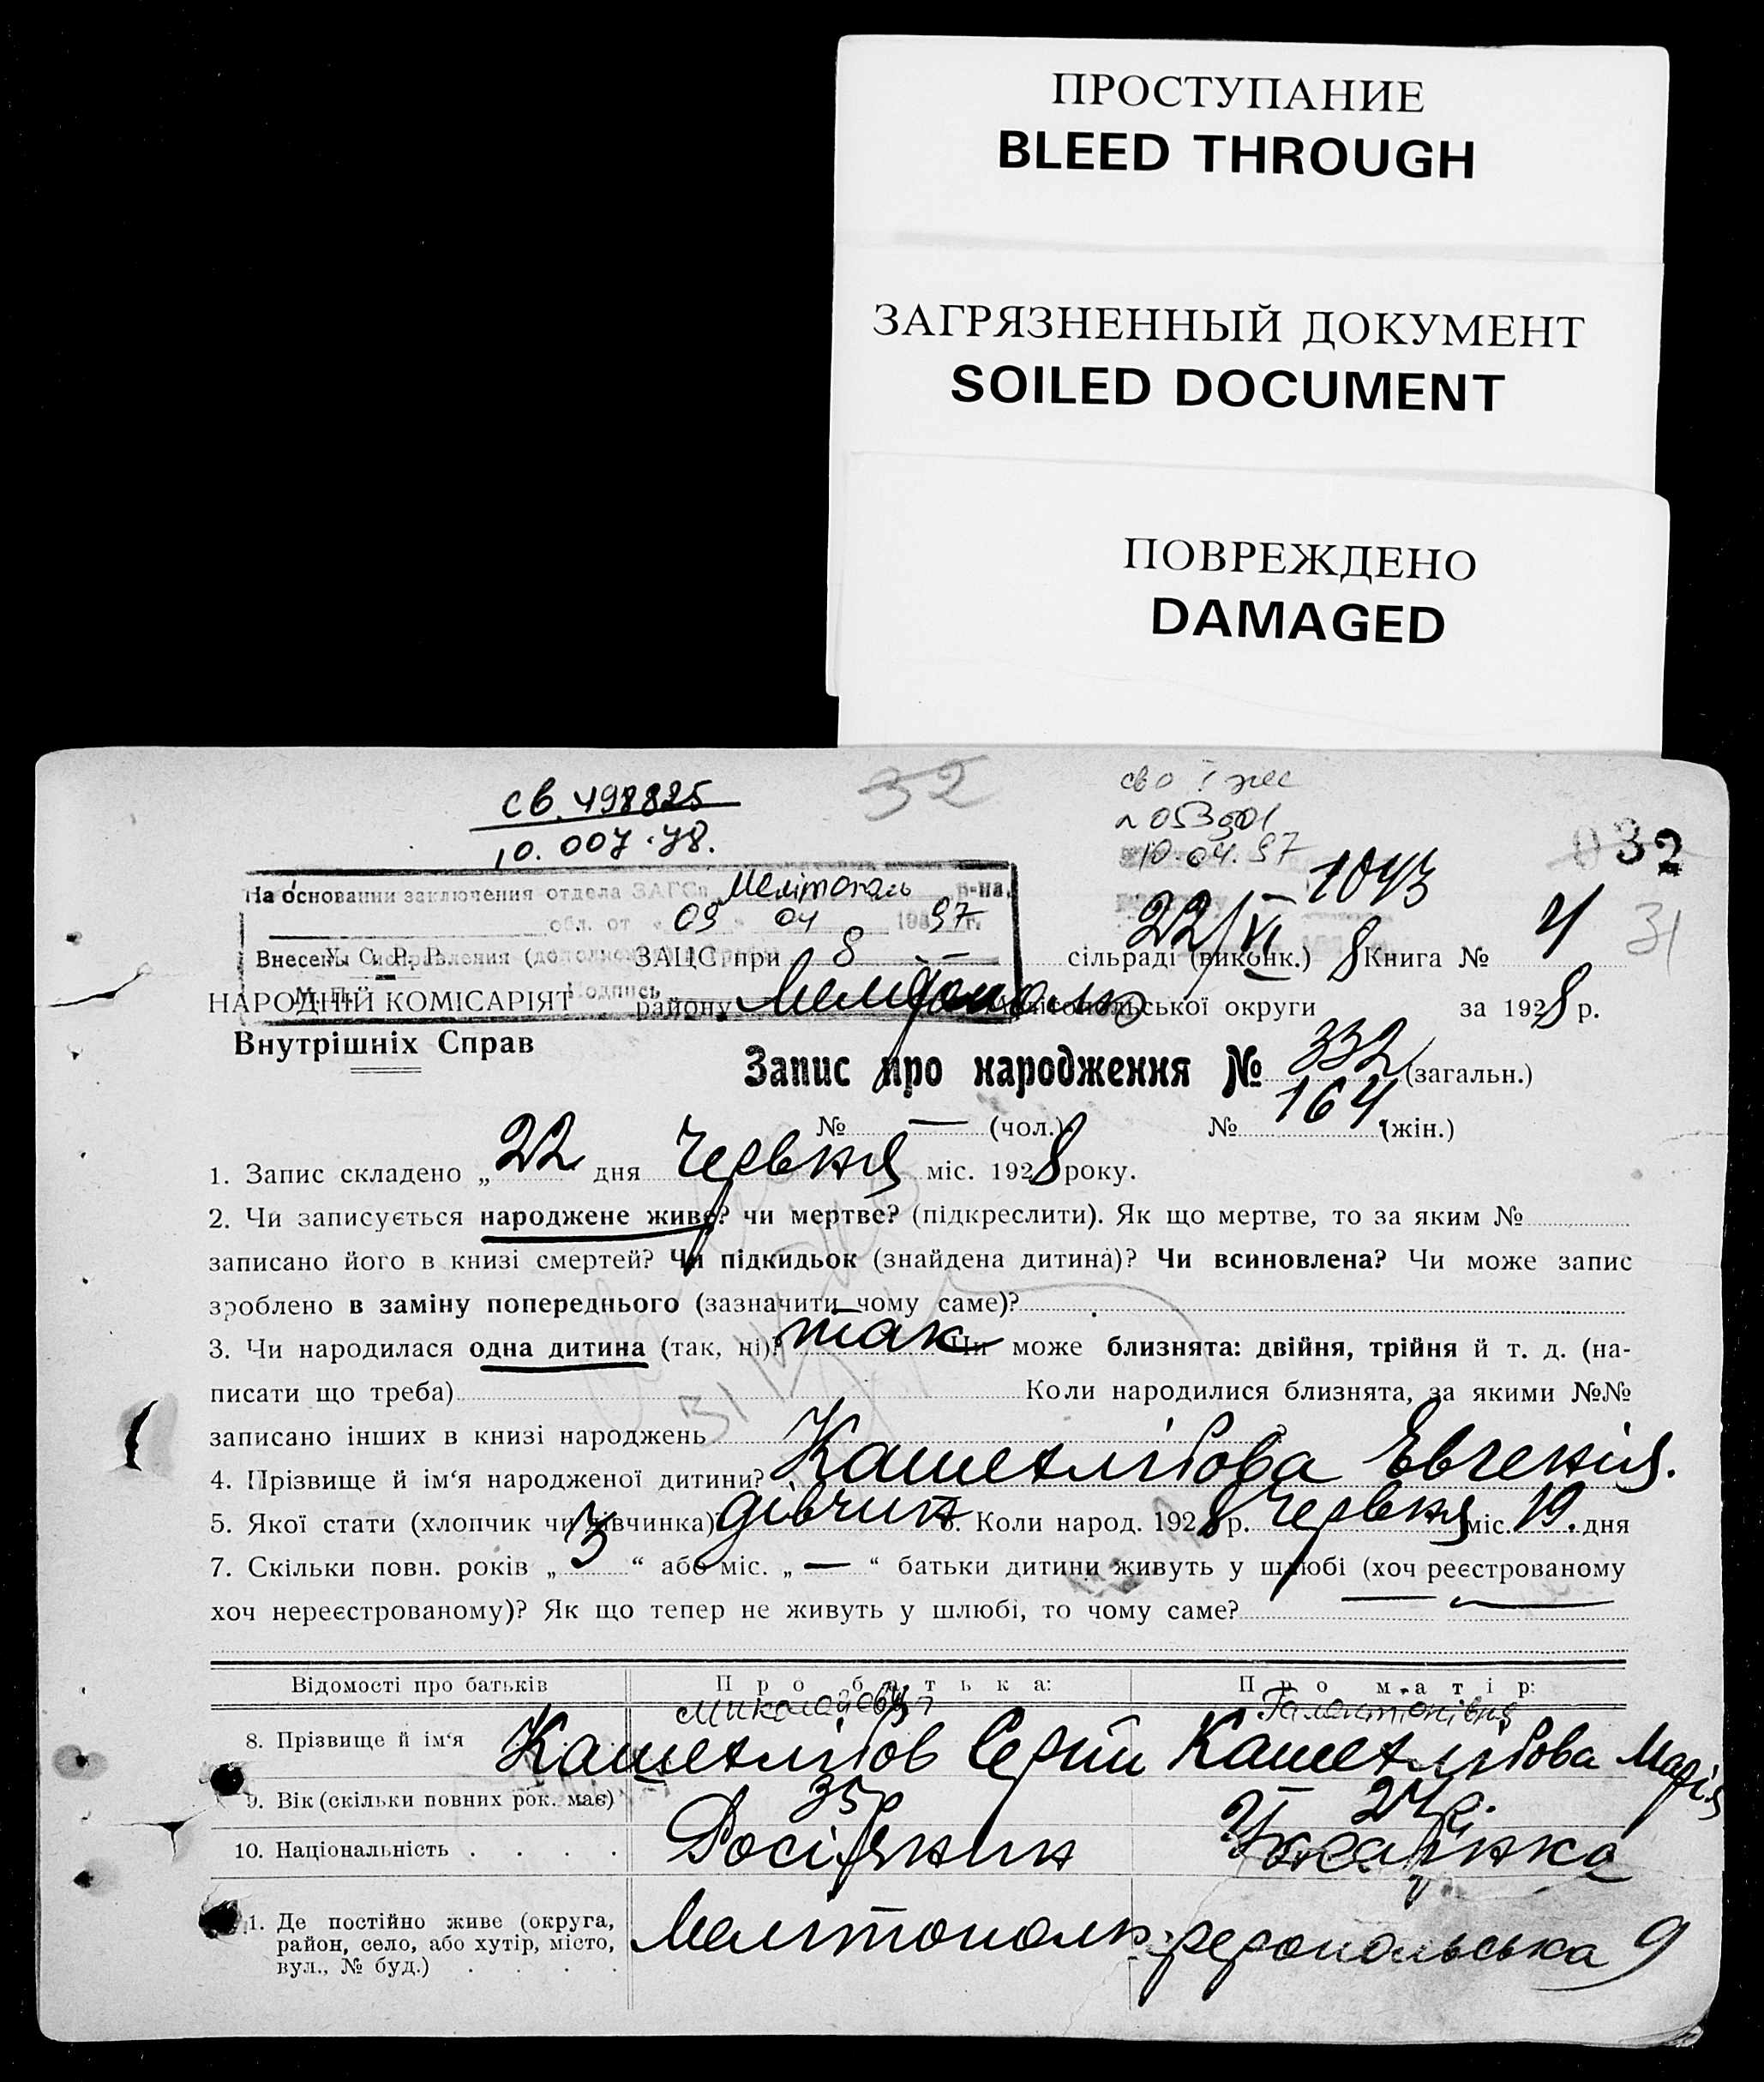 ПРОСТУПАНИЕ
BLEED THROUGH
ЗАГРЯЗНЕННЫЙ ДОКУМЕНТ
SOILED DOCUMENT
ПОВРЕЖДЕНО
DAMAGED
св. 498825
10.007.78.
32
№ 053901
10.04.97
032
1043
22/VI
31
На основании заключения отдела ЗАГСа Мелітополь р-на,
обл. от « 09 » 04 1997 г.
Внесены исправления
М. П. Подпись
У. С. Р. Р. ЗАЦС при 8 — сільраді (виконк.) 8 Книга № 4
НАРОДНІЙ КОМІСАРІЯТ району Мелітополь Мелітопольської округи за 1928 р.
Внутрішніх Справ
Запис про народження № 332 (загальн.)
№ — (чол.) № 164 (жін.)
1. Запис складено „ 22 дня Червня міс. 1928 року.
2. Чи записується народжене живе? чи мертве? (підкреслити). Як що мертве, то за яким №
записано його в книзі смертей? Чи підкидьок (знайдена дитина)? Чи всиновлена? Чи може запис
зроблено в заміну попереднього (зазначити чому саме)?
3. Чи народилася одна дитина (так, ні)? так Чи може близнята: двійня, трійня й т. д. (на-
писати що треба) Коли народилися близнята, за якими №№
записано інших в книзі народжень
4. Прізвище й ім‘я народженої дитини? Кашетлібова Евгенія.
5. Якої стати (хлопчик чи дівчинка) дівчин 6. Коли народ. 1928 р. Червня міс. 19. дня
7. Скільки повн. років „ 3 “ або міс. „ — “ батьки дитини живуть у шлюбі (хоч реєстрованому
хоч нереєстрованому)? Як що тепер не живуть у шлюбі, то чому саме?
Відомості про батьків Про батька: Про матір:
Миколайович
8. Прізвище й ім‘я Кашетлібов Сергій Кашетлібова Марія
9. Вік (скільки повних рок. має) 35р 24р.
10. Національність . . . . Росіянин Українка
11. Де постійно живе (округа,
район, село, або хутір, місто,
вул., № буд.) . . . . Мелітополь 9